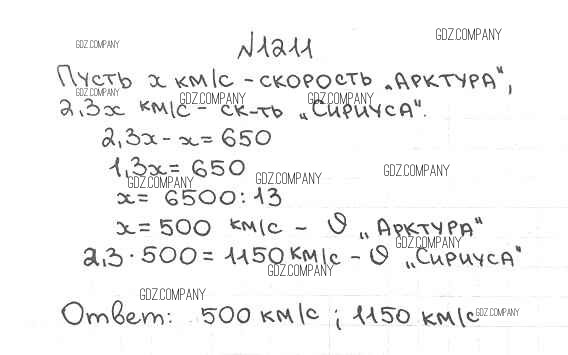 GDZ.COMPANY
GDZ.COMPANY
№1211
Пусть x км/с – скорость „Арктура",
GDZ.COMPANY
GDZ.COMPANY
GDZ.COMPANY
2,3x км/с – ск-ть „Сириуса".
2,3x – x = 650
1,3x = 650
GDZ.COMPANY
GDZ.COMPANY
GDZ.COMPANY
x = 6500 : 13
x = 500 км/с – υ „Арктура"
GDZ.COMPANY
2,3 · 500 = 1150 км/с – υ „Сириуса"
GDZ.COMPANY
GDZ.COMPANY
Ответ: 500 км/с ; 1150 км/с
GDZ.COMPANY